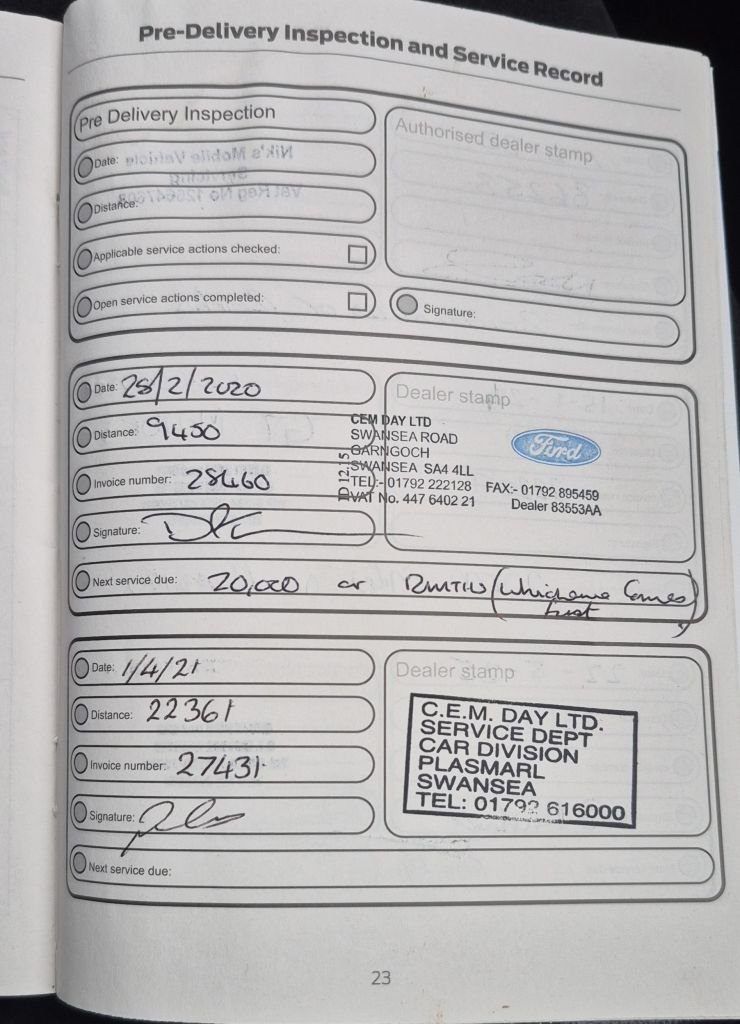 Pre-Delivery Inspection and Service Record
Pre Delivery Inspection
Authorised dealer stamp
Date:
Distance:
Applicable service actions checked:
Open service actions completed:
Signature:
Date: 28/2/2020
Dealer stamp
Distance: 9450
Invoice number: 28460
Signature:
CEM DAY LTD
SWANSEA ROAD
GARNGOCH
SWANSEA SA4 4LL
TEL:- 01792 222128 FAX:- 01792 895459
VAT No. 447 6402 21 Dealer 83553AA
ID 12.15
Ford
Next service due: 20,000 or 12MTHS (Whichever Comes
first)
Date: 1/4/21
Dealer stamp
Distance: 22361
Invoice number: 27431
Signature:
C.E.M. DAY LTD.
SERVICE DEPT
CAR DIVISION
PLASMARL
SWANSEA
TEL: 01792 616000
Next service due:
23